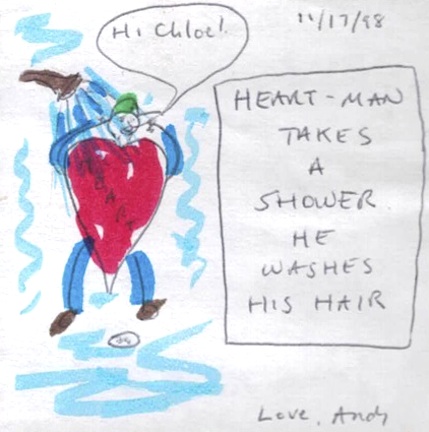 Hi Chloe!
11/17/98
HEART-MAN
TAKES
A
SHOWER.
HE
WASHES
HIS HAIR
Love, Andy